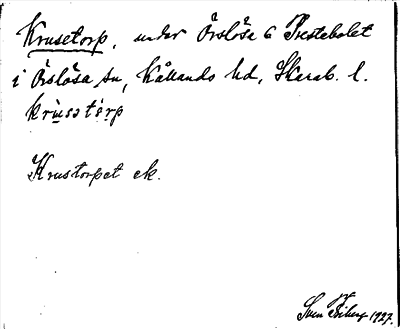 Krusetorp, under Örslösa 6 Prestebolet
i Örslösa sn, Kållands hd, Skarab. l.
krùsetórp
Krustorpet ek.
Sven 1927.